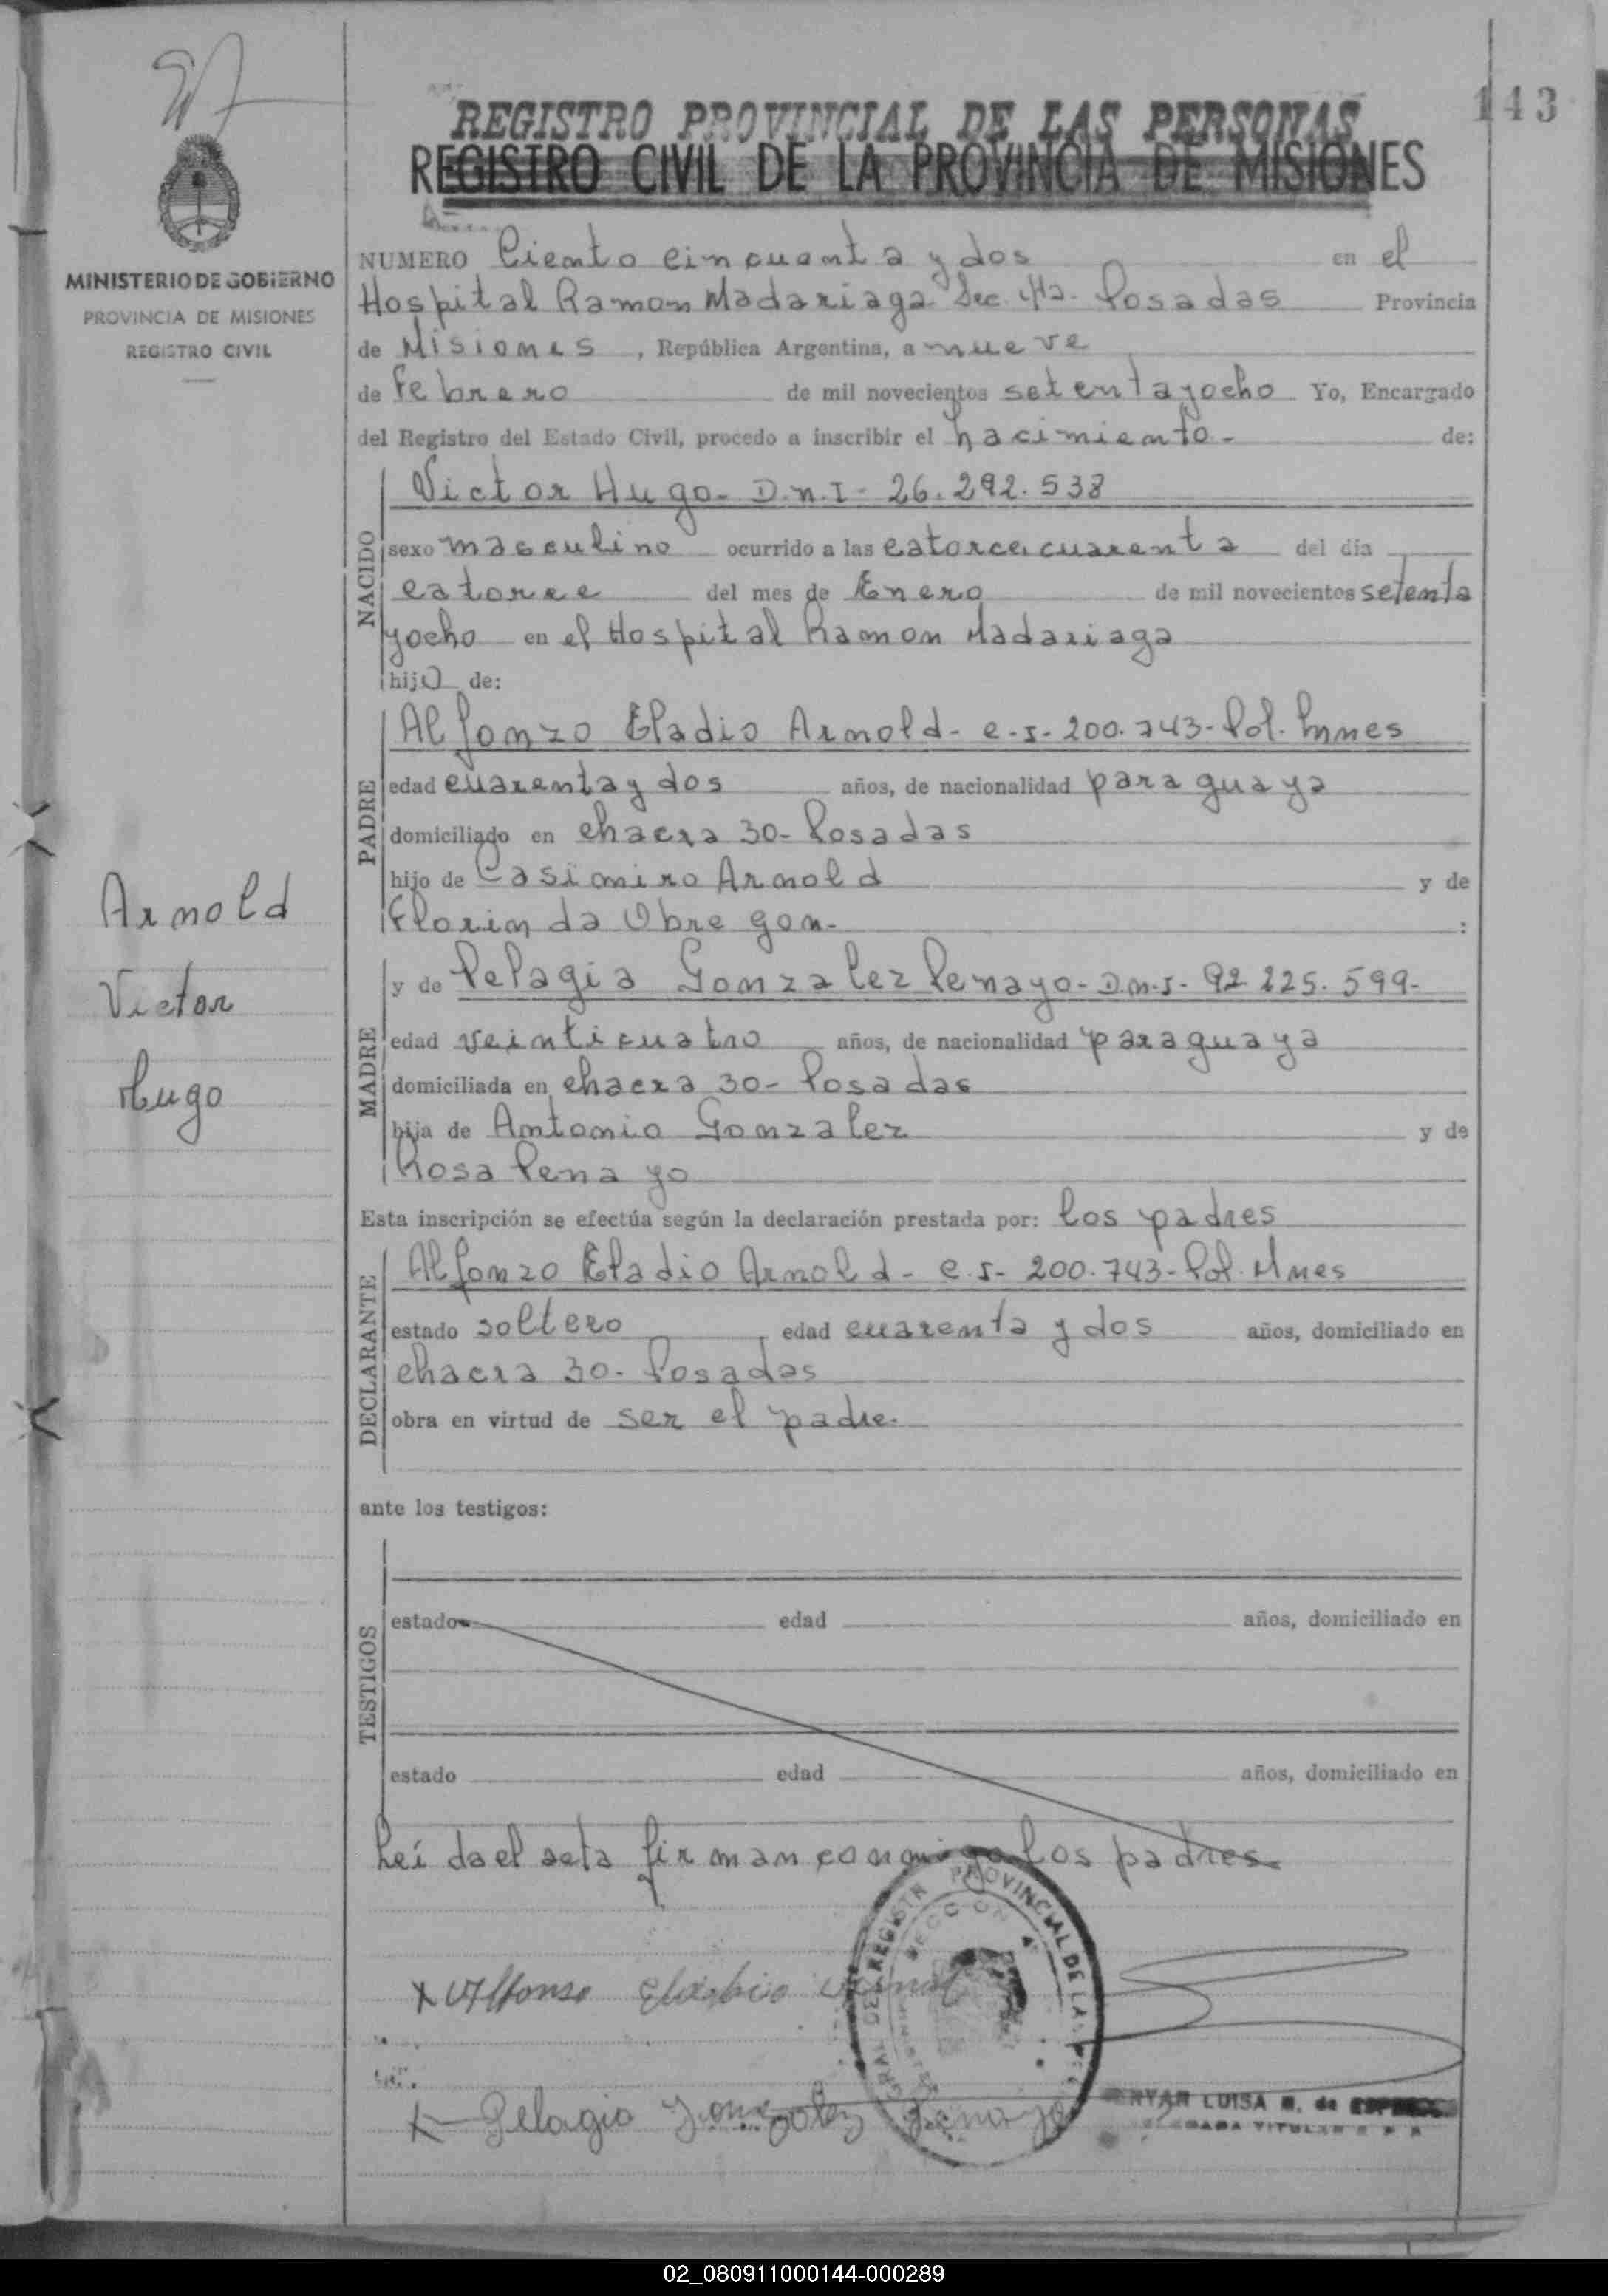 143
REGISTRO PROVINCIAL DE LAS PERSONAS
REGISTRO CIVIL DE LA PROVINCIA DE MISIONES
MINISTERIO DE GOBIERNO
PROVINCIA DE MISIONES
REGISTRO CIVIL
NUMERO Ciento cincuenta y dos en el
Hospital Ramon Madariaga Sec. 4ta. Posadas Provincia
de Misiones , República Argentina, a nueve
de Febrero de mil novecientos setenta y ocho Yo, Encargado
del Registro del Estado Civil, procedo a inscribir el nacimiento - de:
NACIDO
Victor Hugo - D.N.I - 26.292.538
sexo masculino ocurrido a las catorce, cuarenta del día
catorce del mes de Enero de mil novecientos setenta
y ocho en el Hospital Ramon Madariaga
hijo de:
PADRE
Alfonzo Eladio Arnold - C.I - 200.743 - Pol. Mnes
edad cuarenta y dos años, de nacionalidad paraguaya
domiciliado en chacra 30 - Posadas
hijo de Casimiro Arnold y de
Florinda Obregon - :
MADRE
y de Pelagia Gonzalez Penayo - D.N.I - 92.225.599 -
edad veinticuatro años, de nacionalidad paraguaya
domiciliada en chacra 30 - Posadas
hija de Antonio Gonzalez y de
Rosa Penayo
Arnold
Victor
Hugo
Esta inscripción se efectúa según la declaración prestada por: los padres
DECLARANTE
Alfonzo Eladio Arnold - C.I - 200.743 - Pol. Mnes
estado soltero edad cuarenta y dos años, domiciliado en
chacra 30 - Posadas
obra en virtud de ser el padre.
ante los testigos:
TESTIGOS
estado edad años, domiciliado en
estado edad años, domiciliado en
Leída el acta firman conmigo los padres
PROVINCIAL DE LAS
SECCION 4ª
x Alfonso Eladio Arnol
x Pelagia Gonzalez Penayo
LUISA de
TITULAR
02_080911000144-000289